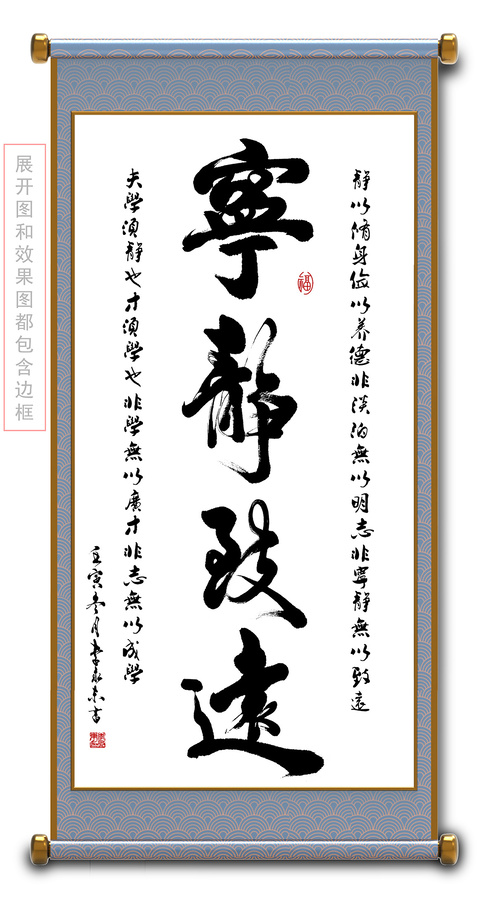 静以脩身儉以养德非淡泊無以明志非寧静無以致遠
福
寧靜致遠
夫學須靜也才須學也非學無以廣才非志無以成學
壬寅冬月李永東書
展开图和效果图都包含边框